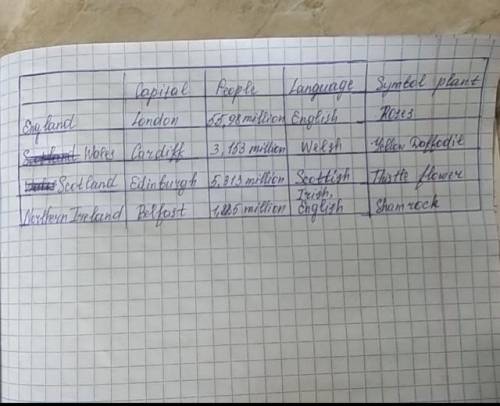 Capital People Language Symbol plant
England London 55,98 million English Roses
Wales Cardiff 3,153 million Welsh Yellow Daffodil
Scotland Edinburgh 5,313 million Scottish Thistle flower
Northern Ireland Belfast million Irish, English Shamrock